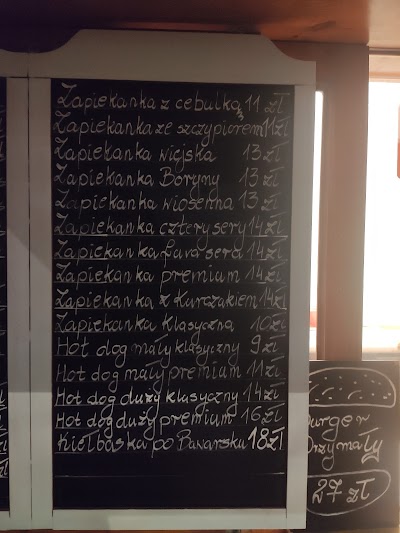 Zapiekanka z cebulką 11 zł
Zapiekanka ze szczypiorem 11 zł
Zapiekanka wiejska 13 zł
Zapiekanka Boryny 13 zł
Zapiekanka wiosenna 13 zł
Zapiekanka cztery sery 14 zł
Zapiekanka Lava sera 14 zł
Zapiekanka premium 14 zł
Zapiekanka z Kurczakiem 14 zł
Zapiekanka Klasyczna 10 zł
Hot dog mały klasyczny 9 zł
Hot dog mały premium 11 zł
Hot dog duży klasyczny 14 zł
Hot dog duży premium 16 zł
Kiełbaska po Bawarsku 18 zł
urger
Drzymały
27 zł